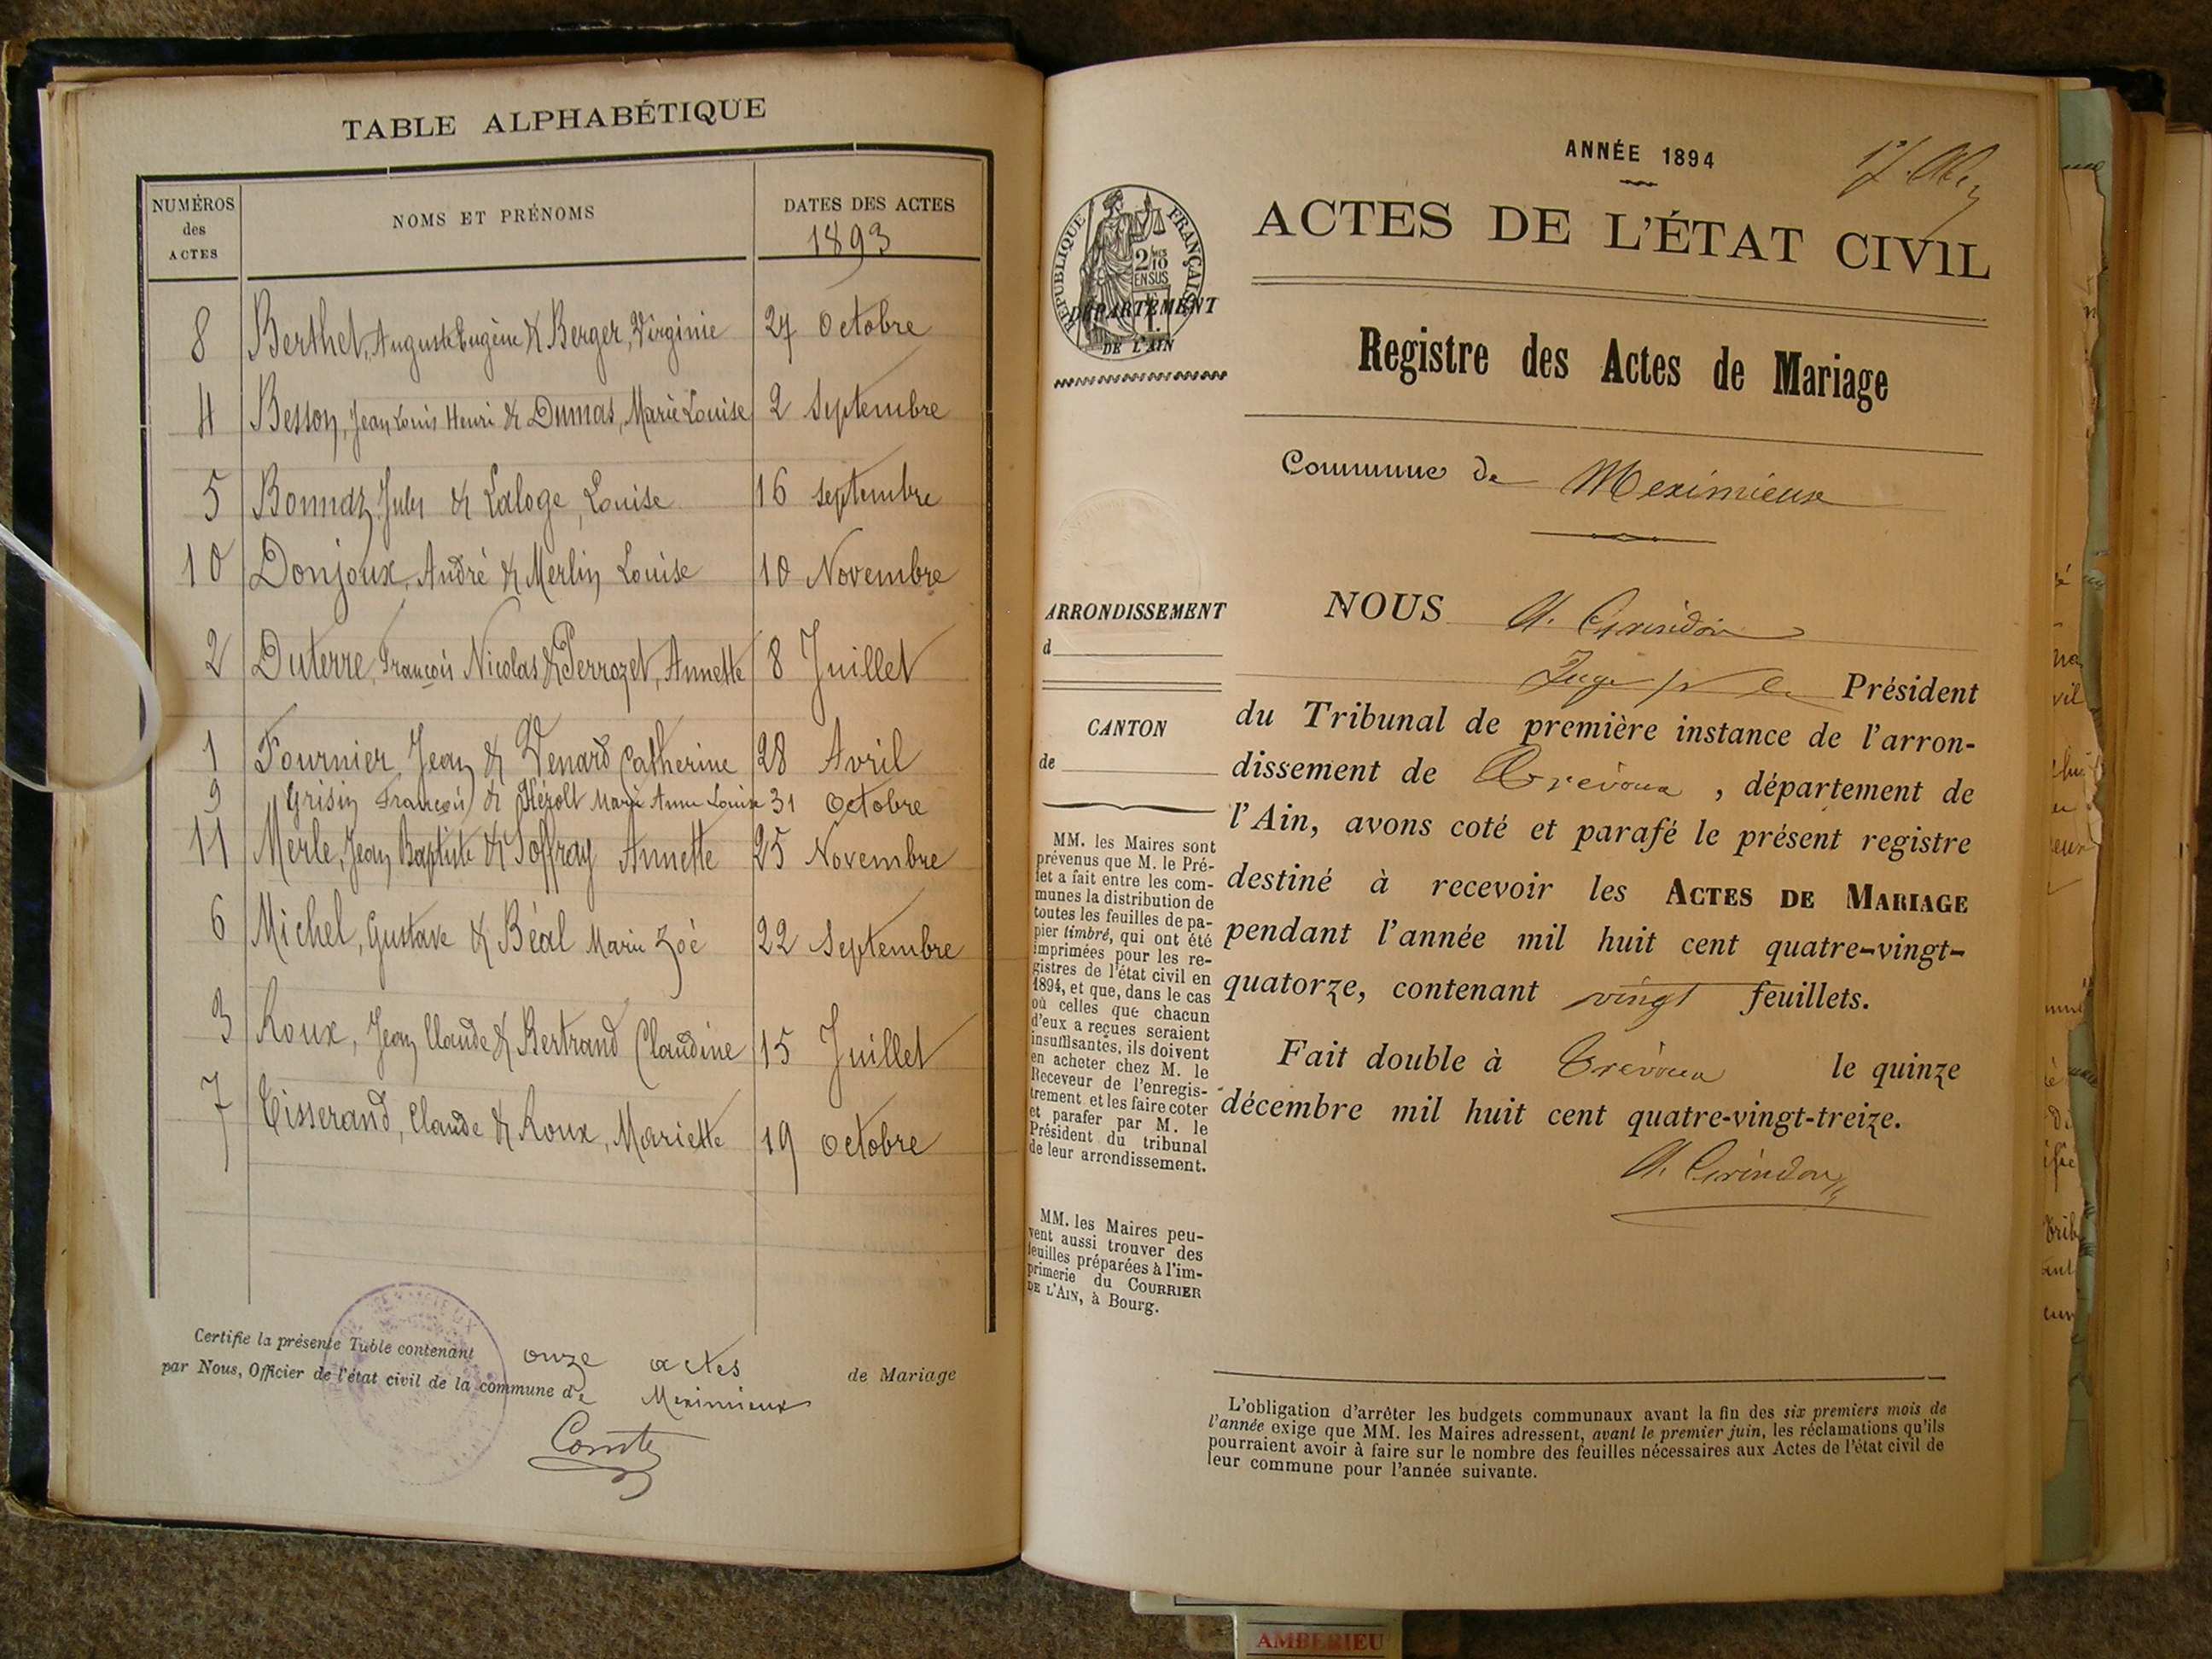 TABLE ALPHABÉTIQUE
NUMÉROS des ACTES
NOMS ET PRÉNOMS
DATES DES ACTES
1893
8 Berthet, Auguste Eugène & Berger, Virginie 27 Octobre
4 Besson, Jean Louis Henri & Dumas, Marie Louise 2 Septembre
5 Bonnaz, Jules & Laloge, Louise 16 septembre
10 Donjoux, André & Merlin Louise 10 Novembre
2 Duterre, François Nicolas & Perrozet, Annette 8 Juillet
1 Fournier Jean & Venard Catherine 28 Avril
9 Grisin François & Hérolt Marie Anne Louise 31 Octobre
11 Merle, Jean Baptiste & Soffray Annette 25 Novembre
6 Michel, Gustave & Béal Marie Zoé 22 Septembre
3 Roux, Jean Claude & Bertrand Claudine 15 Juillet
7 Tisserand, Claude & Roux, Mariette 19 Octobre
Certifie la présente Table contenant onze actes de Mariage
par Nous, Officier de l'état civil de la commune de Meximieux
ANNÉE 1894
ACTES DE L'ÉTAT CIVIL
RÉPUBLIQUE FRANÇAISE
2/10 EN SUS
DÉPARTEMENT
DE L'AIN
Registre des Actes de Mariage
Commune de Meximieux
ARRONDISSEMENT
d
CANTON
de
NOUS A. Grindon
Juge Président
du Tribunal de première instance de l'arron-
dissement de Trévoux, département de
l'Ain, avons coté et parafé le présent registre
destiné à recevoir les ACTES DE MARIAGE
pendant l'année mil huit cent quatre-vingt-
quatorze, contenant vingt feuillets.
Fait double à Trévoux le quinze
décembre mil huit cent quatre-vingt-treize.
A. Grindon
MM. les Maires sont
prévenus que M. le Pré-
fet a fait entre les com-
munes la distribution de
toutes les feuilles de pa-
pier timbré, qui ont été
imprimées pour les re-
gistres de l'état civil en
1894, et que, dans le cas
où celles que chacun
d'eux a reçues seraient
insuffisantes, ils doivent
en acheter chez M. le
Receveur de l'enregis-
trement et les faire coter
et parafer par M. le
Président du tribunal
de leur arrondissement.
MM. les Maires peu-
vent aussi trouver des
feuilles préparées à l'im-
primerie du COURRIER
DE L'AIN, à Bourg.
L'obligation d'arrêter les budgets communaux avant la fin des six premiers mois de
l'année exige que MM. les Maires adressent, avant le premier juin, les réclamations qu'ils
pourraient avoir à faire sur le nombre des feuilles nécessaires aux Actes de l'état civil de
leur commune pour l'année suivante.
AMBERIEU